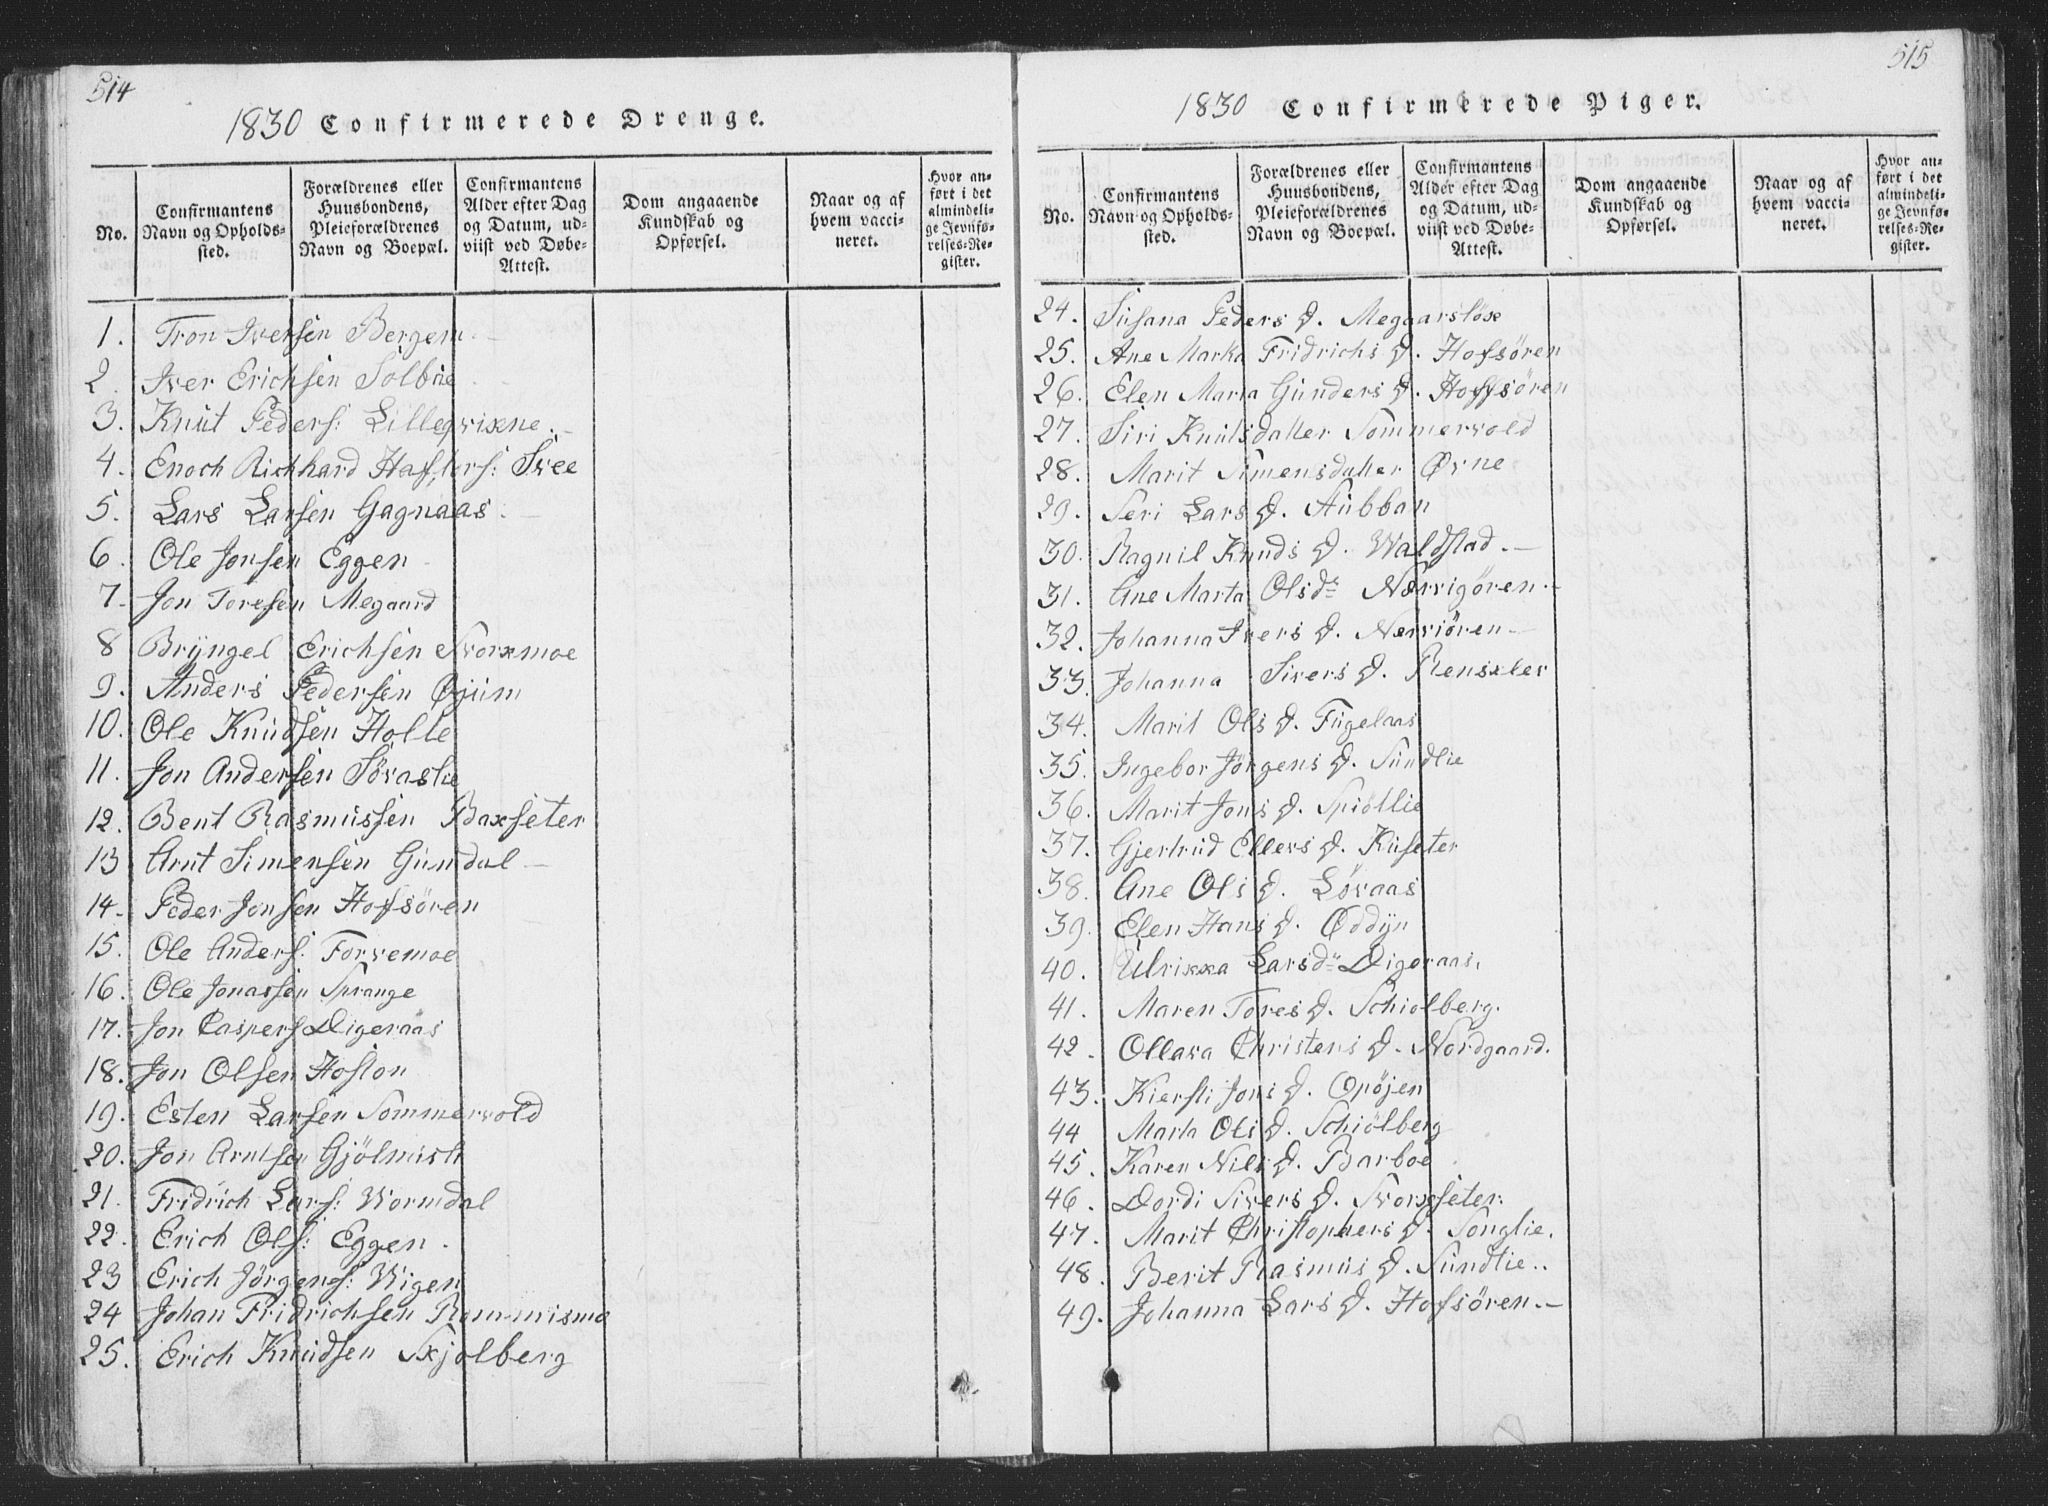 514
1830 Confirmerede Drenge.
No.
Confirmantens Navn og Opholds-sted.
Forældrenes eller Huusbondens, Pleieforældrenes Navn og Boepæl.
Confirmantens Alder efter Dag og Datum, ud-viist ved Døbe-Attest.
Dom angaaende Kundskab og Opførsel.
Naar og af hvem vacci-neret.
Hvor an-ført i det almindeli-ge Jevnfø-relses-Re-gister.
1. Tron Iversen Bergem.
2. Iver Erichsen Solbüe
3. Knüt Peders: Lilleqvixne.
4. Enoch Richhard Hafters: Svee
5. Lars Larsen Gagnaas.
6. Ole Jonsen Eggen
7. Jon Toresen Megaard
8 Brÿngel Erichsen Svorxmoe
9. Anders Pedersen Øÿüm
10. Ole Knüdsen Holte
11. Jon Andersen Søraslie
12. Bent Rasmüssen Baxseter
13 Arnt Simensen Gündal
14. Peder Jonsen Hofsören
15. Ole Anders: Forvemoe
16. Ole Jonassen Sprange
17. Jon Caspers Digeraas
18. Jon Olsen Hoston
19. Esten Larsen Sommervold
20. Jon Arntsen Gjölmisli
21. Fridrich Lars: Wormdal
22. Erich Ols: Eggen.
23 Erich Jörgens: Wigen
24 Johan Fridrichsen Rommismo
25. Erich Knüdsen Sxjolberg
515
1830 Confirmerede Piger.
No.
Confirmantens Navn og Opholds-sted.
Forældrenes eller Huusbondens, Pleieforældrenes Navn og Boepæl.
Confirmantens Alder efter Dag og Datum, ud-viist ved Døbe-Attest.
Dom angaaende Kundskab og Opførsel.
Naar og af hvem vacci-neret.
Hvor an-ført i det almindeli-ge Jevnfø-relses-Re-gister.
24. Süsana Peders D. Megaarsløx
25. Ane Marka Fridrichs D. Hofsören
26. Elen Maria Günders D. Hoffsören
27. Siri Knutsdatter Sommervold
28. Marit Simensdatter Øvne
29. Seri Lars D. Stübban
30. Ragnil Knuds D. Waldstad.
31. Ane Marta Olsdr Nærvigören.
32. Johanna Ivers D. Nerviören
33. Johanna Sivers D. Rensxlev
34. Marit Ols D. Fügelaas
35. Ingebor Jörgens D. Sündlie
36. Marit Jons D. Spiöllie
37. Gjertrüd Ellevs D. Küseter
38. Ane Ols D. Løvaas
39. Elen Hans D. Øddÿn
40. Ulrixxa Larsdr Digeraas.
41. Maren Tores D. Schiolberg.
42. Ollava Christens D. Nordgaard.
43. Kiersti Jons D. Opøjen
44 Marta Ols D. Schiölberg
45. Karen Nils D. Barboe
46. Dordi Sivers D. Svorxseter.
47. Marit Christophers D. Songlie.
48. Berit Rasmüs D. Sündlie..
49. Johanna Lars D. Hofsören.